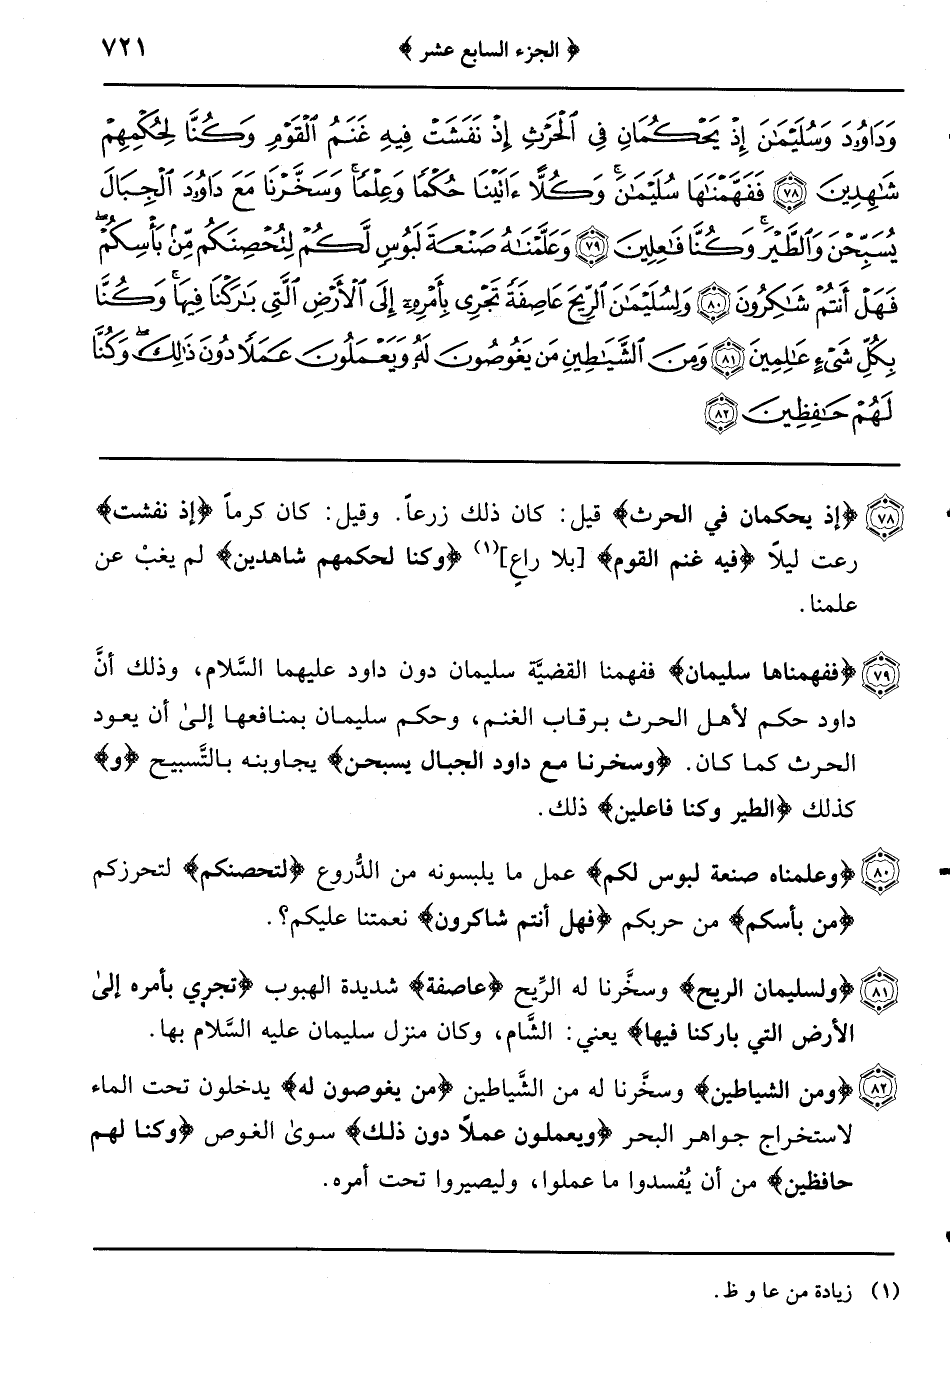 ﴿ الجزء السابع عشر ﴾ ٧٢١
وَدَاوُۥدَ وَسُلَيْمَٰنَ إِذْ يَحْكُمَانِ فِى ٱلْحَرْثِ إِذْ نَفَشَتْ فِيهِ غَنَمُ ٱلْقَوْمِ وَكُنَّا لِحُكْمِهِمْ
شَٰهِدِينَ ﴿٧٨﴾ فَفَهَّمْنَٰهَا سُلَيْمَٰنَ ۚ وَكُلًّا ءَاتَيْنَا حُكْمًا وَعِلْمًا ۚ وَسَخَّرْنَا مَعَ دَاوُۥدَ ٱلْجِبَالَ
يُسَبِّحْنَ وَٱلطَّيْرَ ۚ وَكُنَّا فَٰعِلِينَ ﴿٧٩﴾ وَعَلَّمْنَٰهُ صَنْعَةَ لَبُوسٍ لَّكُمْ لِتُحْصِنَكُم مِّنۢ بَأْسِكُمْ ۖ
فَهَلْ أَنتُمْ شَٰكِرُونَ ﴿٨٠﴾ وَلِسُلَيْمَٰنَ ٱلرِّيحَ عَاصِفَةً تَجْرِى بِأَمْرِهِۦٓ إِلَى ٱلْأَرْضِ ٱلَّتِى بَٰرَكْنَا فِيهَا ۚ وَكُنَّا
بِكُلِّ شَىْءٍ عَٰلِمِينَ ﴿٨١﴾ وَمِنَ ٱلشَّيَٰطِينِ مَن يَغُوصُونَ لَهُۥ وَيَعْمَلُونَ عَمَلًا دُونَ ذَٰلِكَ ۖ وَكُنَّا
لَهُمْ حَٰفِظِينَ ﴿٨٢﴾
٧٨ ﴿إذ يحكمان في الحرث﴾ قيل: كان ذلك زرعاً. وقيل: كان كرماً ﴿إذ نفشت﴾
رعت ليلًا ﴿فيه غنم القوم﴾ [بلا راعٍ](١) ﴿وكنا لحكمهم شاهدين﴾ لم يغبْ عن
علمنا.
٧٩ ﴿ففهمناها سليمان﴾ ففهمنا القضيَّة سليمان دون داود عليهما السَّلام، وذلك أنَّ
داود حكم لأهل الحرث برقاب الغنم، وحكم سليمان بمنافعها إلىٰ أن يعود
الحرث كما كان. ﴿وسخرنا مع داود الجبال يسبحن﴾ يجاوبنه بالتَّسبيح ﴿و﴾
كذلك ﴿الطير وكنا فاعلين﴾ ذلك.
٨٠ ﴿وعلمناه صنعة لبوس لكم﴾ عمل ما يلبسونه من الدُّروع ﴿لتحصنكم﴾ لتحرزكم
﴿من بأسكم﴾ من حربكم ﴿فهل أنتم شاكرون﴾ نعمتنا عليكم؟.
٨١ ﴿ولسليمان الريح﴾ وسخَّرنا له الرِّيح ﴿عاصفة﴾ شديدة الهبوب ﴿تجري بأمره إلىٰ
الأرض التي باركنا فيها﴾ يعني: الشَّام، وكان منزل سليمان عليه السَّلام بها.
٨٢ ﴿ومن الشياطين﴾ وسخَّرنا له من الشَّياطين ﴿من يغوصون له﴾ يدخلون تحت الماء
لاستخراج جواهر البحر ﴿ويعملون عملًا دون ذلك﴾ سوىٰ الغوص ﴿وكنا لهم
حافظين﴾ من أن يُفسدوا ما عملوا، وليصيروا تحت أمره.
(١) زيادة من عا و ظ.